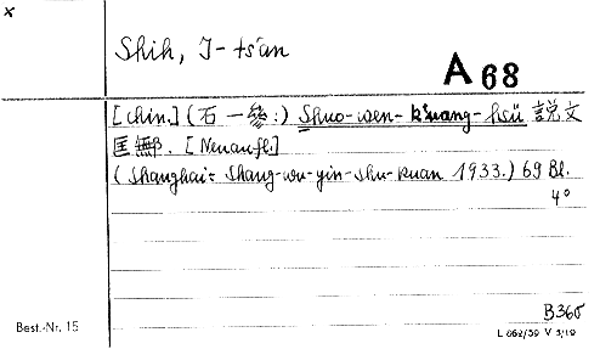 x
Shih, I-ts'an
A 68
[chin.] (石一參:) Shuo-wen-k'uang-hsü 説文
匡鄦. [Neuaufl.]
(Shanghai: Shang-wu-yin-shu-kuan 1933.) 69 Bl.
4°
B365
Best.-Nr. 15
L 662/59 V 5/19